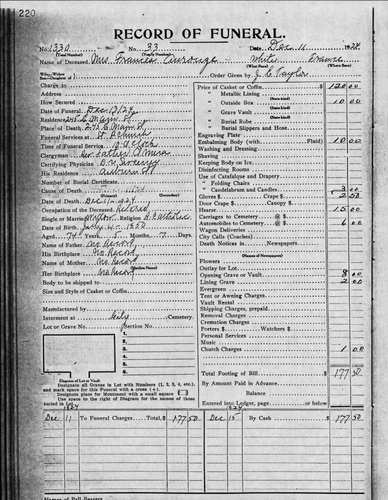 220
RECORD OF FUNERAL.
No. 1330 (Yearly Number) No. 33 Date Dec 11 1924
Name of Deceased Mrs Francis White France
(What Race) (Where Born)
Wife, Widow or Daughter of Order Given by J. C. Taylor
Charge to
Address
How Secured
Date of Funeral Dec 13/24
Residence 245 E Main St
Place of Death 245 E Main St
Funeral Services at St. B Church
Time of Funeral 10 O'Clock
Clergyman Rev Father O'Mara
Certifying Physician Sweeney
His Residence Auburn
Number of Burial Certificate
Cause of Death
Date of Death Dec 11 1924
Occupation of the Deceased Retired
Single or Married Religion R. Catholic
Date of Birth July 4 - 1850
Aged 74 Years 5 Months 7 Days
Name of Father No Record
His Birthplace No Record
Name of Mother No Record
(Maiden Name)
Her Birthplace No Record
Body to be shipped to
Size and Style of Casket or Coffin
Manufactured by
Interment at City Cemetery.
Lot or Grave No. Section No.
1
2
3
4
5
6
Diagram of Lot or Vault
Designate all Graves in Lot with Numbers (1, 2, 3, 4, etc.),
and mark space for this Funeral with a cross (+).
Designate place for Monument with a small square □
Use space to the right of Diagram for the names of those
buried in Lot.
Price of Casket or Coffin $ 120 00
" Metallic Lining
(State kind)
" Outside Box 10 00
(State kind)
" Grave Vault
(State kind)
" Burial Robe
(State kind)
" Burial Slippers and Hose
Engraving Plate
Embalming Body (with Fluid) 10 00
Washing and Dressing
Shaving
Keeping Body on Ice
Disinfecting Rooms
Use of Catafalque and Drapery
" Folding Chairs
" Candelabrum and Candles 3 00
Gloves $ Crape $ 2 50
Door Crape Canopy $
Hearse 15 00
Carriages to Cemetery @ $
Automobiles to Cemetery @ $ 6 00
Wagon Deliveries
City Calls (Coaches)
Death Notices in Newspapers
(Names of Newspapers)
Flowers
Outlay for Lot
Opening Grave or Vault 8 00
Lining Grave 2 00
Evergreen
Tent or Awning Charges
Vault Rental
Shipping Charges, prepaid
Removal Charges
Cremation Charges
Porters $ Watchers $
Personal Services
Music
Church Charges 1 00
Total Footing of Bill $ 177 50
By Amount Paid in Advance
Balance
Entered into Ledger, page or below
1924 1924
Dec 11 To Funeral Charges Total, $ 177 50 Dec 15 By Cash $ 177 50
Names of Pall Bearers